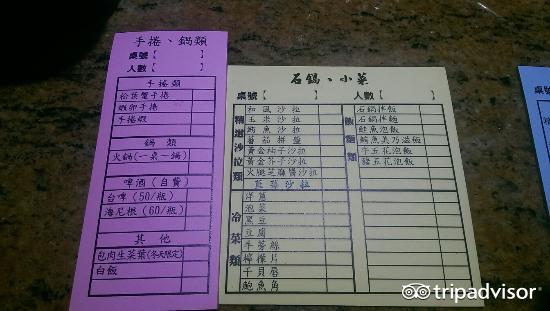 手捲、鍋類
桌號【 】
人數【 】
手捲類
松葉蟹手捲
蝦卵手捲
手捲蝦
鍋 類
火鍋(一桌一鍋)
啤酒(自費)
台啤(50/瓶)
海尼根(60/瓶)
其 他
包肉生菜葉(冬天限定)
白飯
石鍋、小菜
桌號【 】
人數【 】
精緻沙拉類
和風沙拉
玉米沙拉
鮪魚沙拉
番茄拼盤
黃金柚子沙拉
黃金芥子沙拉
火腿芝麻醬沙拉
藍莓沙拉
冷菜類
洋蔥
泡菜
黑豆
豆腐
牛蒡絲
檸檬片
干貝唇
鮑魚角
飯類
石鍋拌飯
石鍋泡飯
鮭魚泡飯
鮪魚美乃滋飯
牛五花泡飯
豬五花泡飯
桌號
人數
tripadvisor